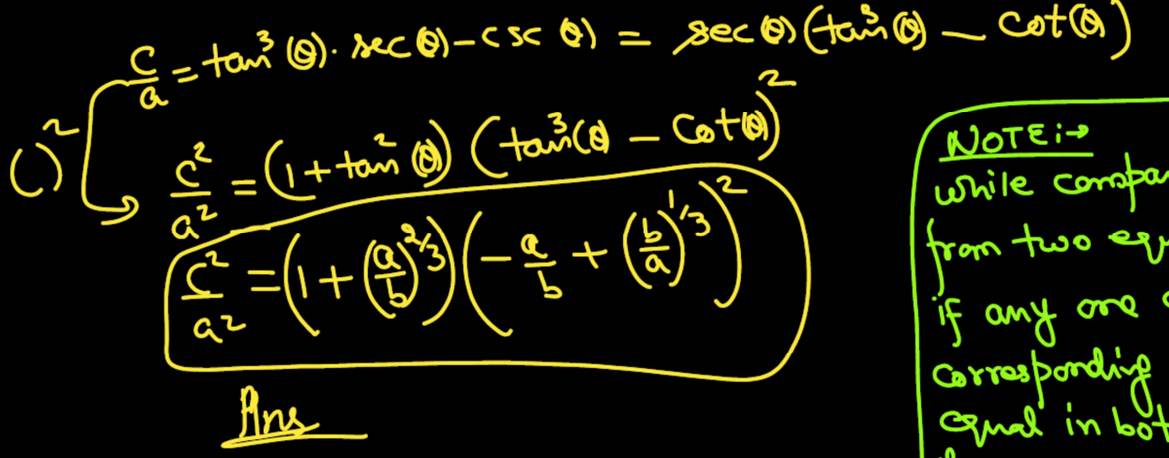 c/a = tan³(θ)·sec(θ) - csc(θ) = sec(θ)(tan³(θ) - cot(θ))
( )²
c²/a² = (1 + tan²(θ)) (tan³(θ) - cot(θ))²
c²/a² = (1 + (a/b)^2/3) (-a/b + (b/a)^1/3)²
Ans
NOTE:→
while compar
from two equ
if any one
corresponding
equal in bot